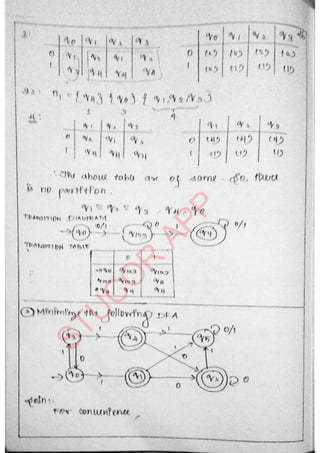 q0 q1 q2 q3
0 q1 q2 q1 q3
1 q3 q4 q4 q4
q0 q1 q2 q3
0
1
π1 = {q4} {q0} {q1,q2,q3}
q1 q2 q3
0 q2 q1 q3
1 q4 q4 q4
q1 q2 q3
0 (4) (4) (4)
1 (1) (1) (1)
∴ The above table are of same. So, there
is no partition.
q1 = q2 = q3 , q4, q0
TRANSITION DIAGRAM
q0 0/1 q123 0 1 q4 0/1
TRANSITION TABLE
0 1
→q0 q123 q123
q123 q123 q4
q4 q4 q4
② Minimize the following DFA
q3 1 q4 1 q5 0/1
1 0 1 0 1
q0 1 q1 0 q2 0
Soln:-
For convenience,
©TUTOR APP